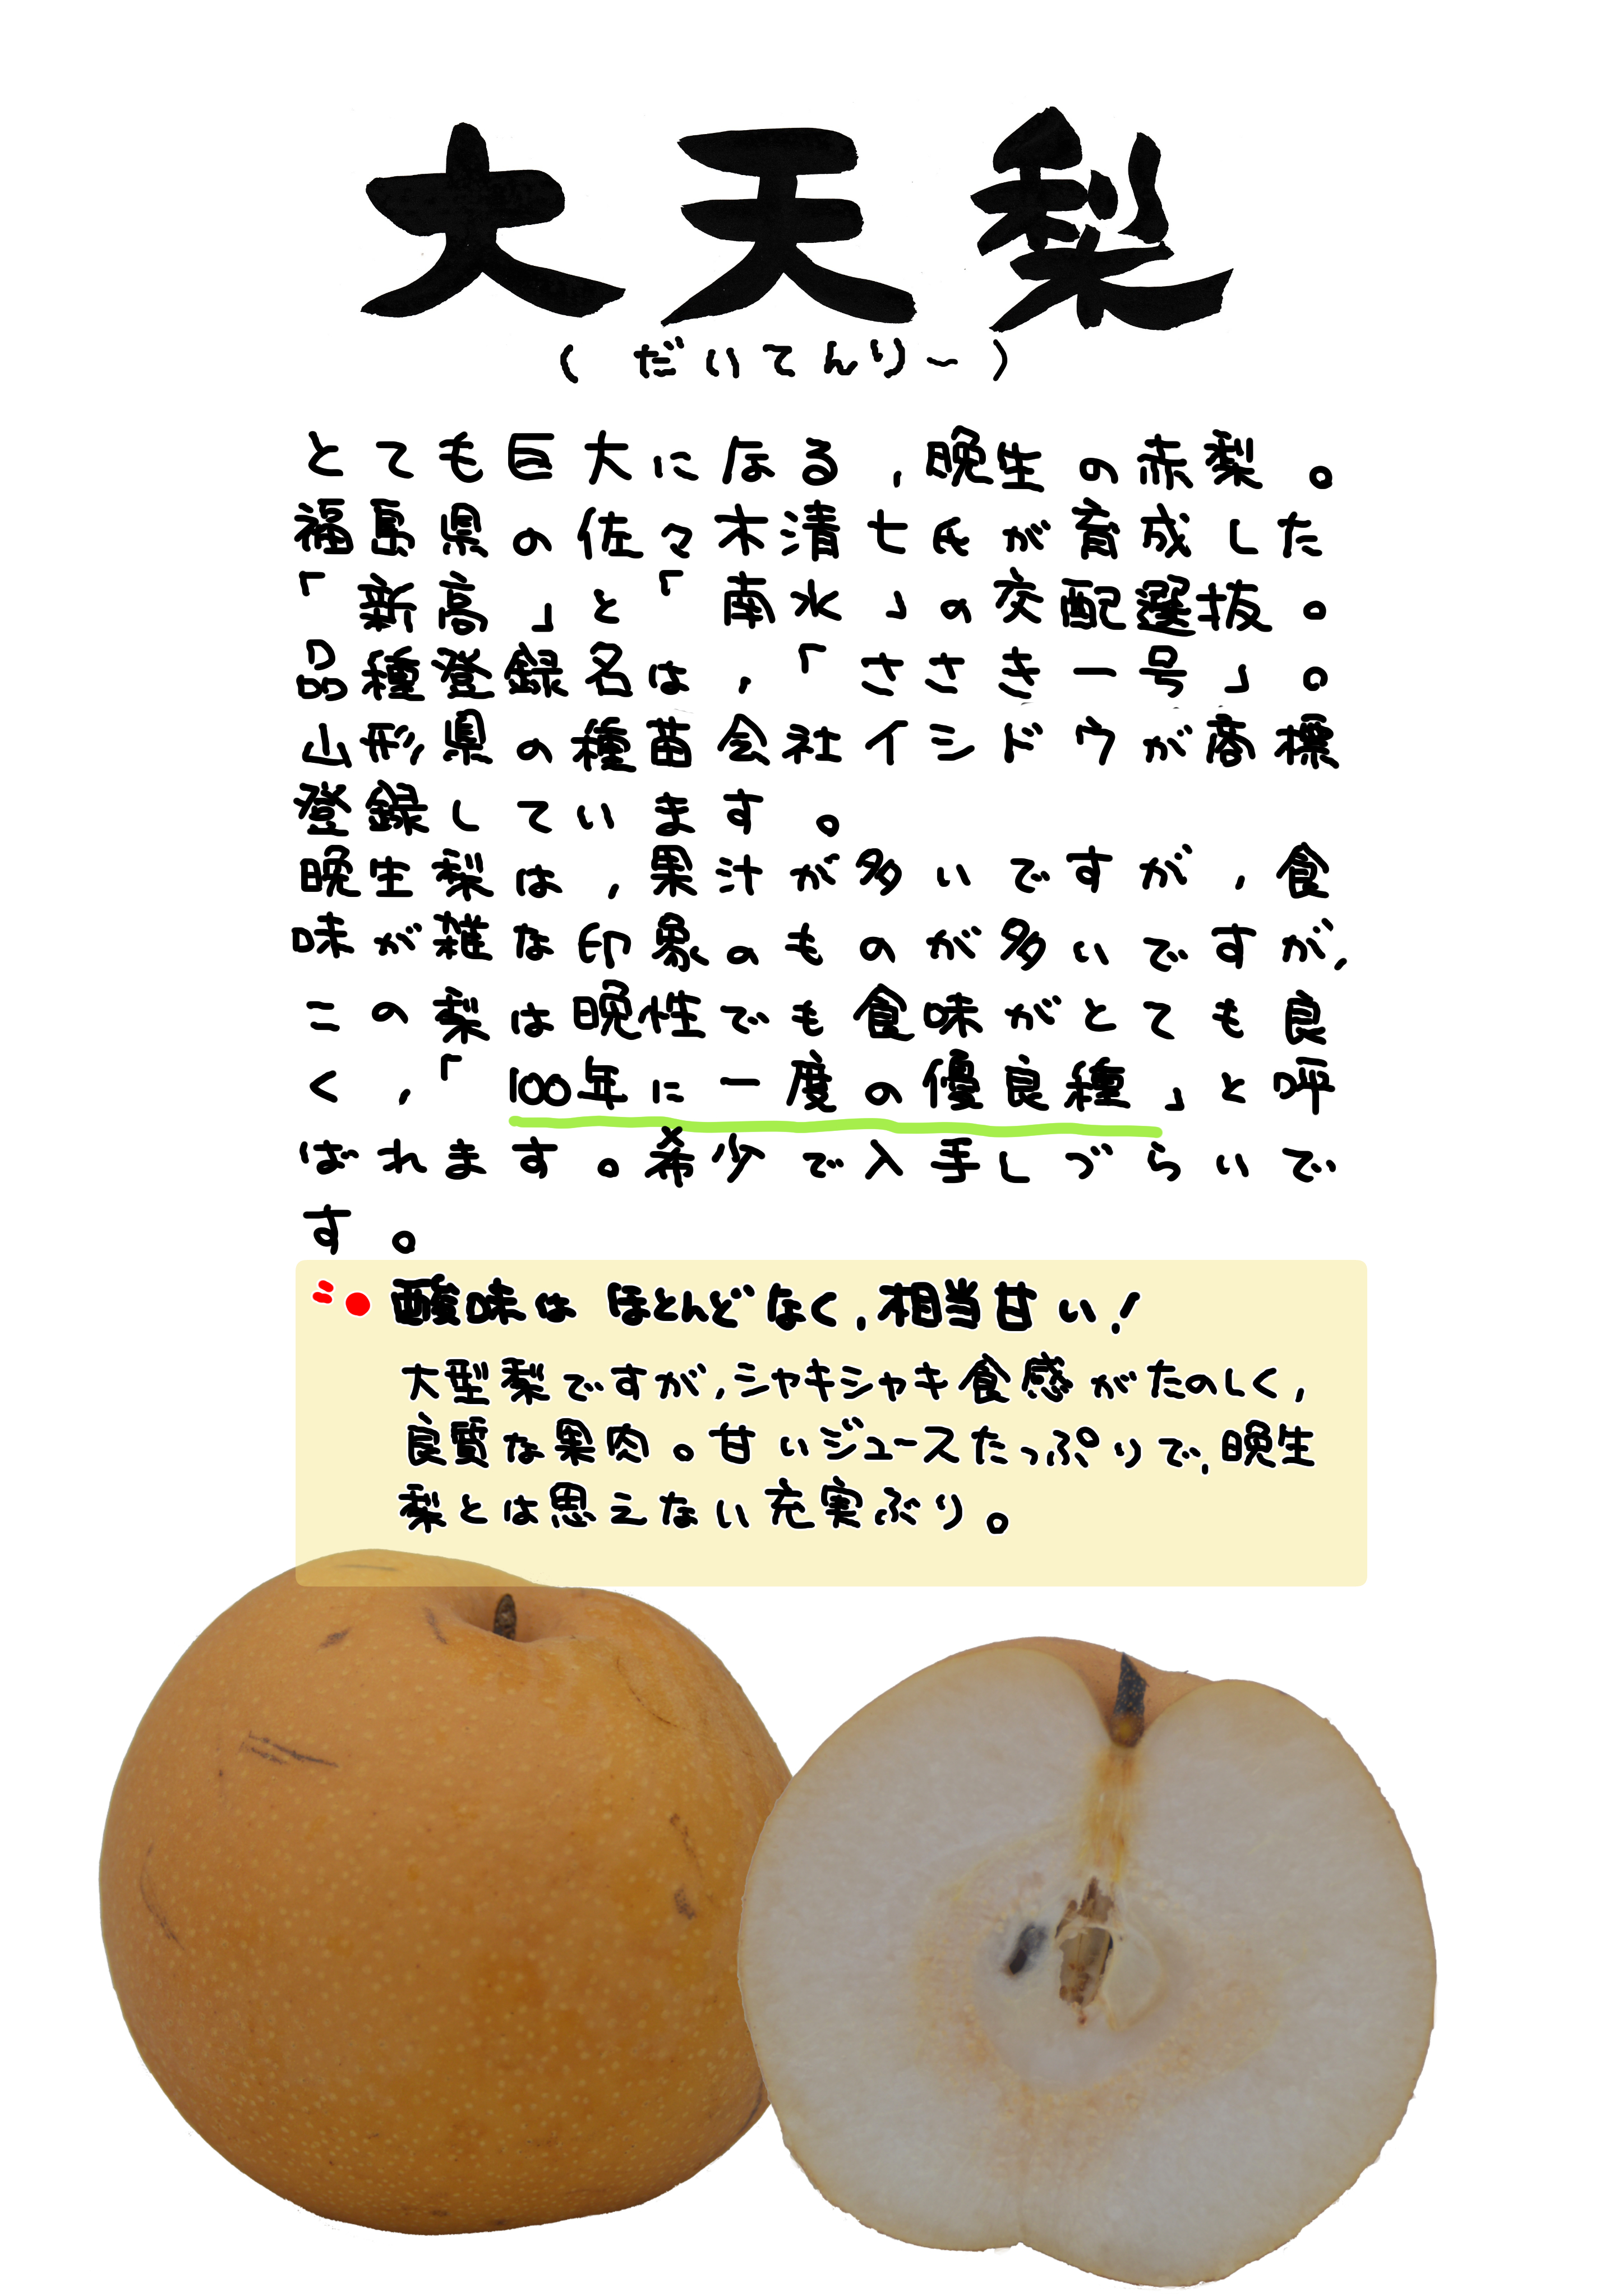 大天梨
(だいてんりー)
とても巨大になる,晩生の赤梨。
福島県の佐々木清七氏が育成した
「新高」と「南水」の交配選抜。
品種登録名は,「ささき一号」。
山形県の種苗会社イシドウが商標
登録しています。
晩生梨は,果汁が多いですが,食
味が雑な印象のものが多いですが,
この梨は晩性でも食味がとても良
く,「100年に一度の優良種」と呼
ばれます。希少で入手しづらいで
す。
酸味はほとんどなく,相当甘い!
大型梨ですが,シャキシャキ食感がたのしく,
良質な果肉。甘いジュースたっぷりで,晩生
梨とは思えない充実ぶり。